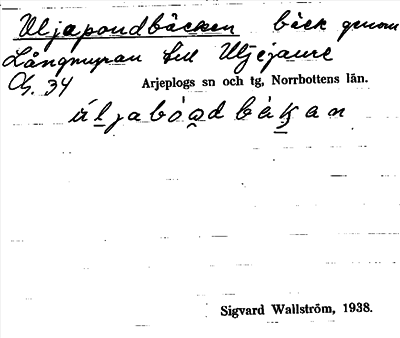 Uljapoudbäcken bäck genom
Långmyran till Uljejaure
Arjeplogs sn och tg, Norrbottens län.
Sigvard Wallström, 1938.